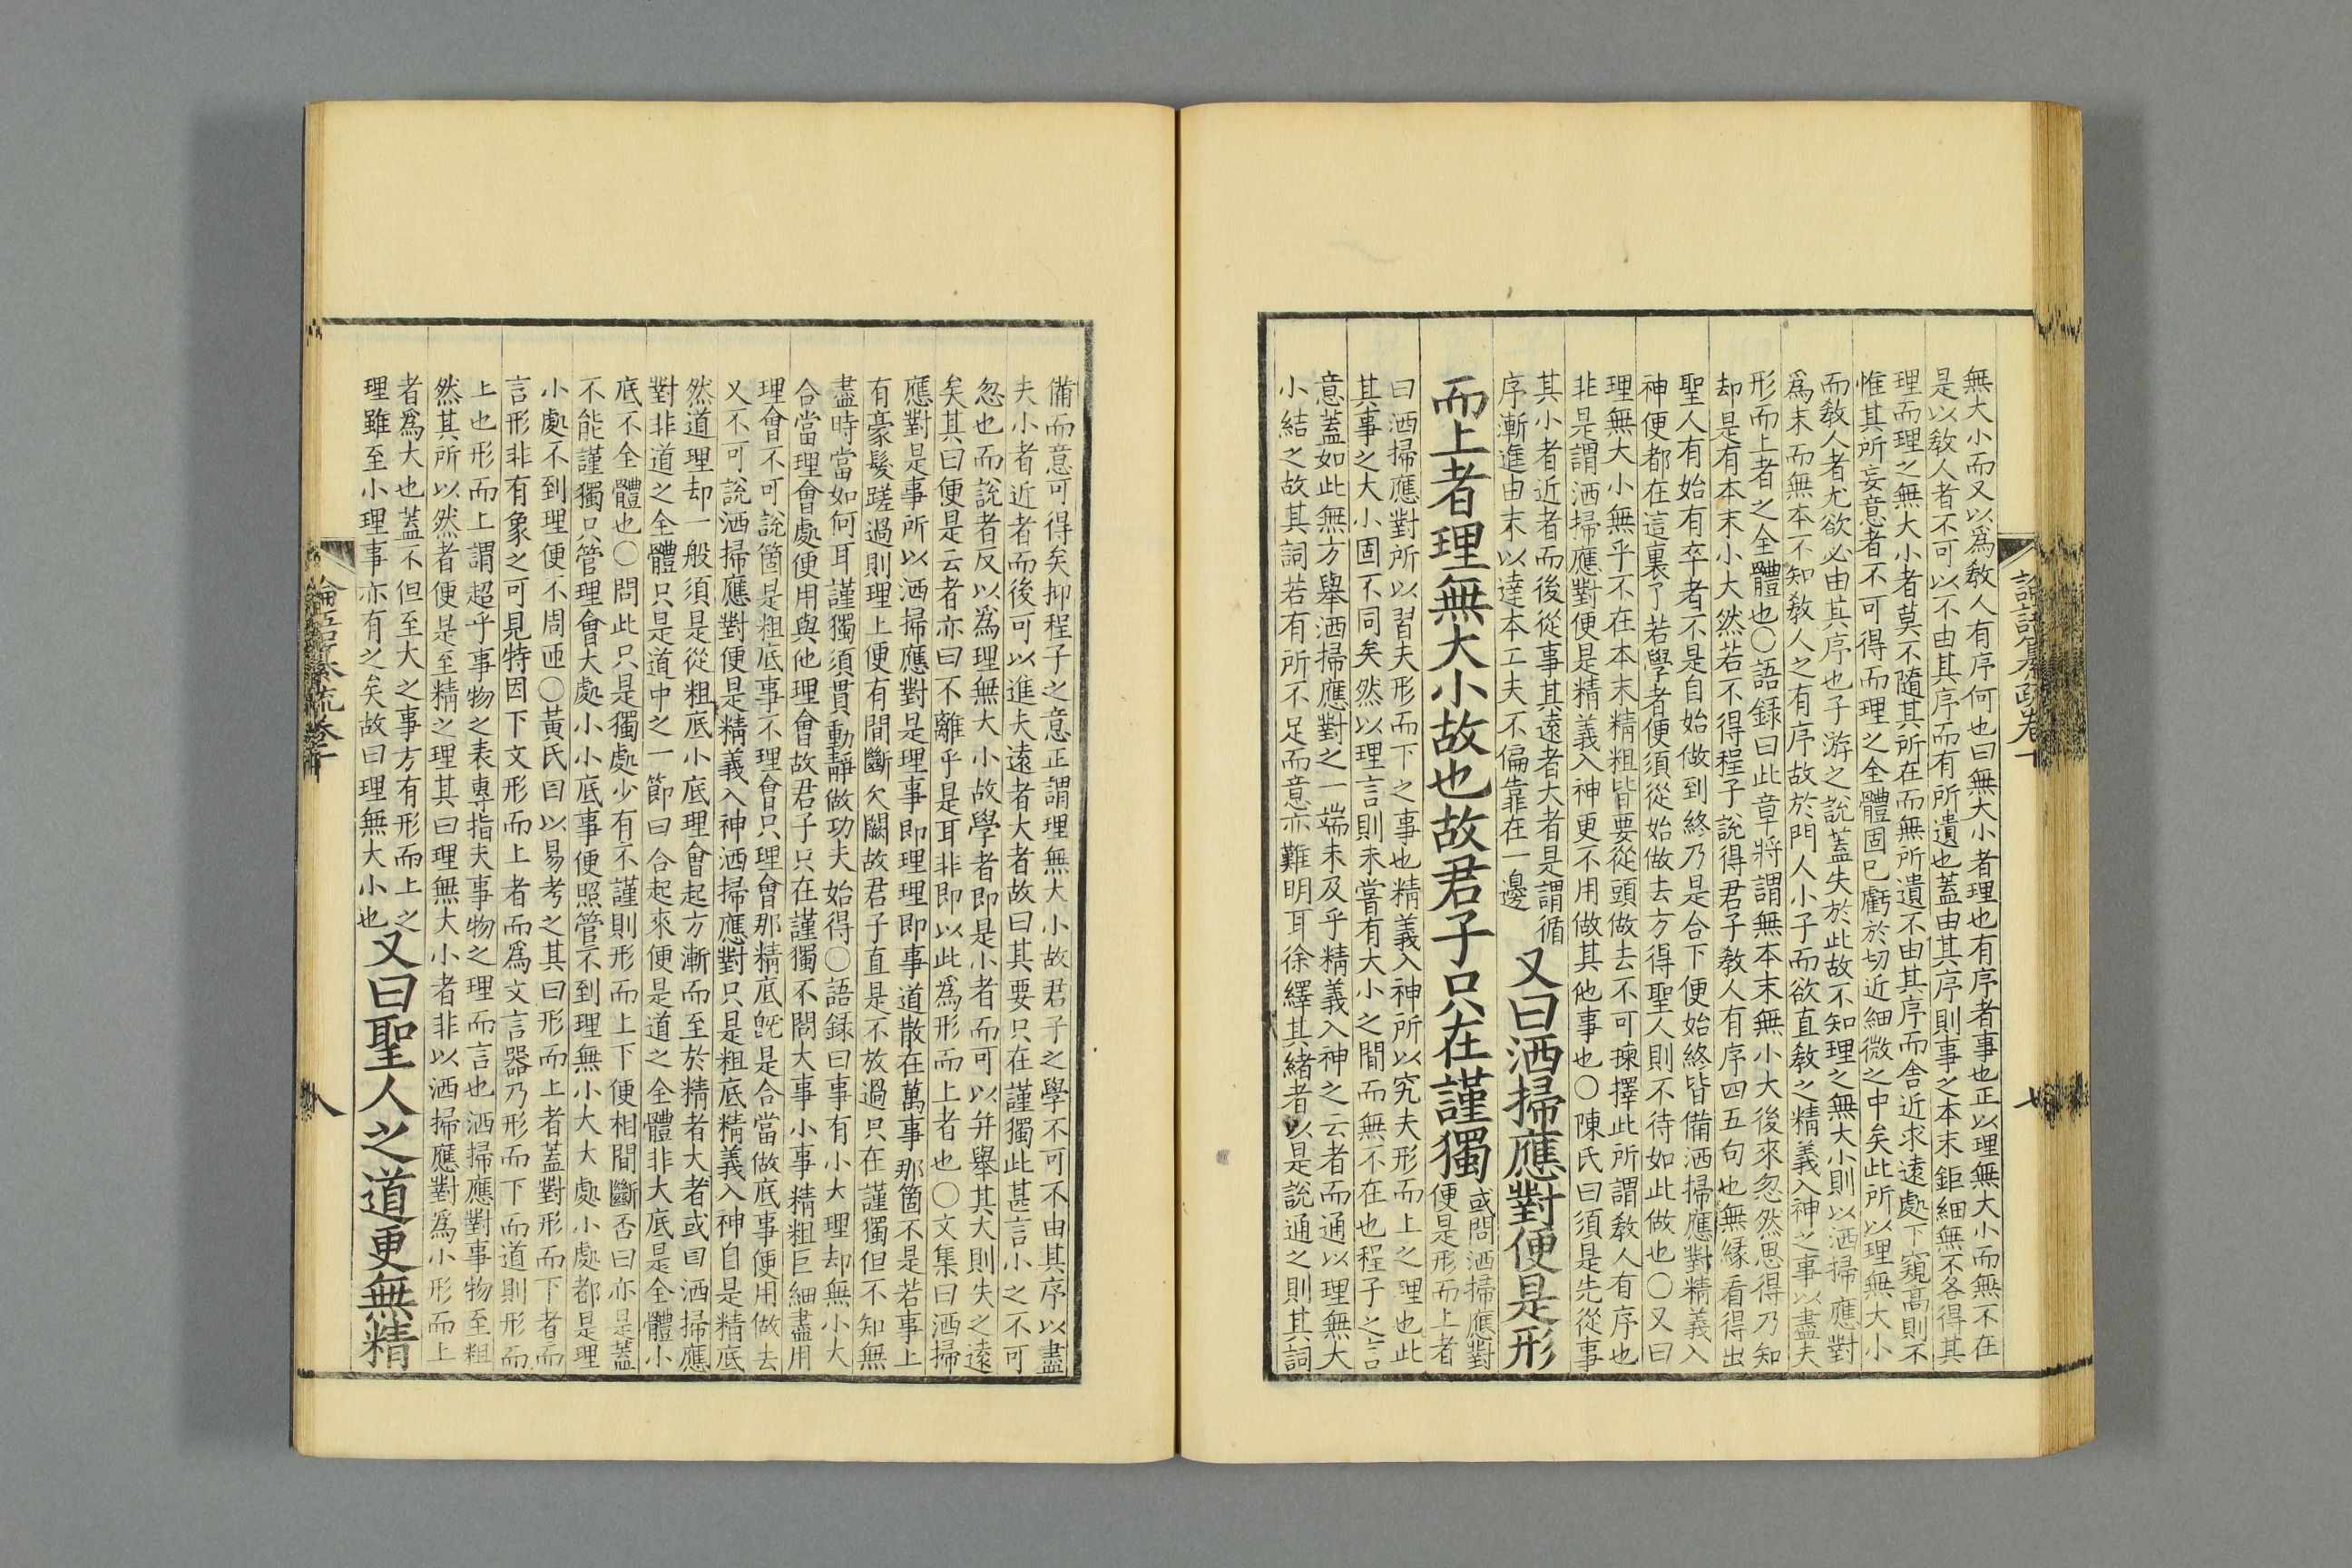 無大小而又以爲敎人有序何也曰無大小者理也有序者事也正以理無大小而無不在
是以敎人者不可以不由其序而有所遺也蓋由其序則事之本末鉅細無不各得其
理而理之無大小者莫不隨其所在而無所遺不由其序而舍近求遠處下窺高則不
惟其所妄意者不可得而理之全體固已虧於切近細微之中矣此所以理無大小
而敎人者尤欲必由其序也子游之說蓋失於此故不知理之無大小則以洒掃應對
爲末而無本不知敎人之有序故於門人小子而欲直敎之精義入神之事以盡夫
形而上者之全體也○語録曰此章將謂無本末無小大後來忽然思得乃知
却是有本末小大然若不得程子說得君子敎人有序四五句也無縁看得出
聖人有始有卒者不是自始做到終乃是合下便始終皆備洒掃應對精義入
神便都在這裏了若學者便須從始做去方得聖人則不待如此做也○又曰
理無大小無乎不在本末精粗皆要從頭做去不可揀擇此所謂敎人有序也
非是謂洒掃應對便是精義入神更不用做其他事也○陳氏曰須是先從事
其小者近者而後從事其遠者大者是謂循
序漸進由末以達本工夫不偏靠在一邊
又曰洒掃應對便是形
而上者理無大小故也故君子只在謹獨
或問洒掃應對
便是形而上者
曰洒掃應對所以習夫形而下之事也精義入神所以究夫形而上之理也此
其事之大小固不同矣然以理言則未嘗有大小之間而無不在也程子之言
意蓋如此無方舉洒掃應對之一端未及乎精義入神之云者而通以理無大
小結之故其詞若有所不足而意亦難明耳徐繹其緒者以是說通之則其詞
備而意可得矣抑程子之意正謂理無大小故君子之學不可不由其序以盡
夫小者近者而後可以進夫遠者大者故曰其要只在謹獨此甚言小之不可
忽也而說者反以爲理無大小故學者即是小者而可以并舉其大則失之遠
矣其曰便是云者亦曰不離乎是耳非即以此爲形而上者也○文集曰洒掃
應對是事所以洒掃應對是理事即理理即事道散在萬事那箇不是若事上
有毫髮蹉過則理上便有間斷欠闕故君子直是不放過只在謹獨但不知無
盡時當如何耳謹獨須貫動靜做功夫始得○語録曰事有小大理却無小大
合當理會處便用與他理會故君子只在謹獨不問大事小事精粗巨細盡用
理會不可說箇是粗底事不理會只理會那精底旣是合當做底事便用做去
又不可說洒掃應對便是精義入神洒掃應對只是粗底精義入神自是精底
然道理却一般須是從粗底小底理會起方漸而至於精者大者或曰洒掃應
對非道之全體只是道中之一節曰合起來便是道之全體非大底是全體小
底不全體也○問此只是獨處少有不謹則形而上下便相間斷否曰亦是蓋
不能謹獨只管理會大處小小底事便照管不到理無小大大處小處都是理
小處不到理便不周匝○黃氏曰以易考之其曰形而上者蓋對形而下者而
言形非有象之可見特因下文形而上者而爲文言器乃形而下而道則形而
上也形而上謂超乎事物之表專指夫事物之理而言也洒掃應對事物至粗
然其所以然者便是至精之理其曰理無大小者非以洒掃應對爲小形而上
者爲大也蓋不但至大之事方有形而上之
理雖至小理事亦有之矣故曰理無大小也
又曰聖人之道更無精
八